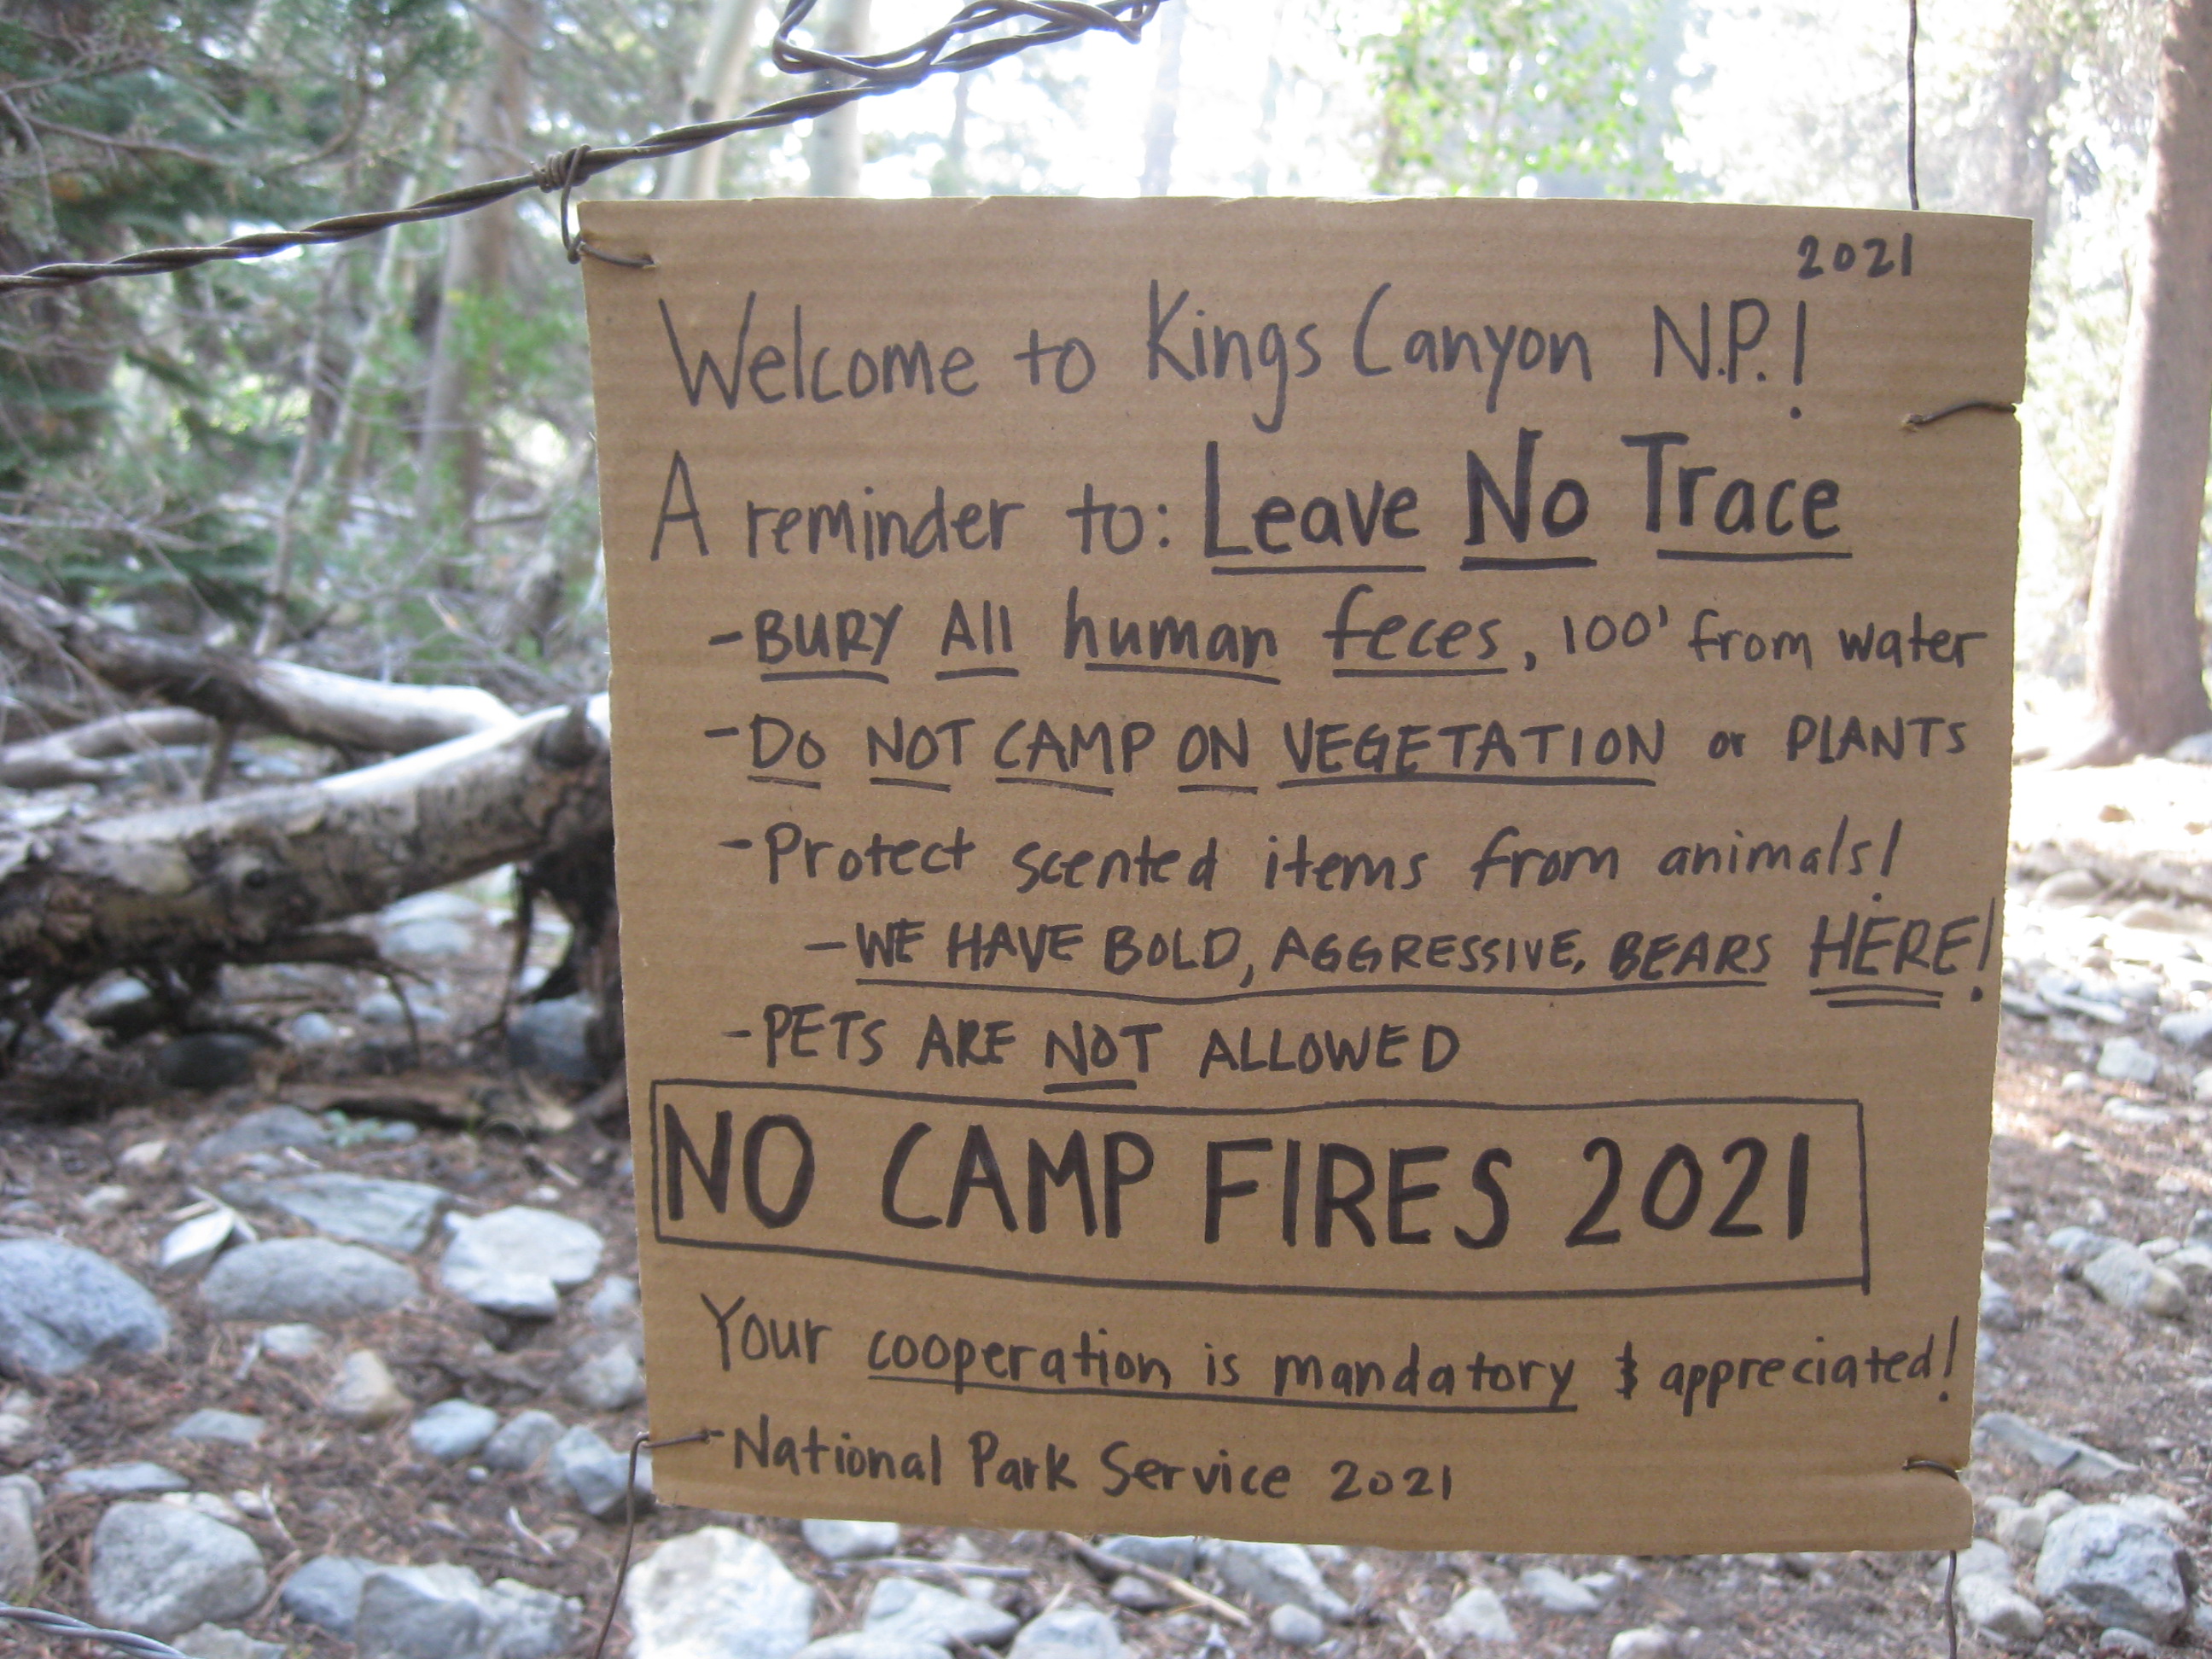 2021
Welcome to Kings Canyon N.P.!
A reminder to: Leave No Trace
- BURY All human feces, 100' from water
- Do NOT CAMP ON VEGETATION or PLANTS
- Protect scented items from animals!
- WE HAVE BOLD, AGGRESSIVE, BEARS HERE!
- PETS ARE NOT ALLOWED
NO CAMP FIRES 2021
Your cooperation is mandatory & appreciated!
- National Park Service 2021